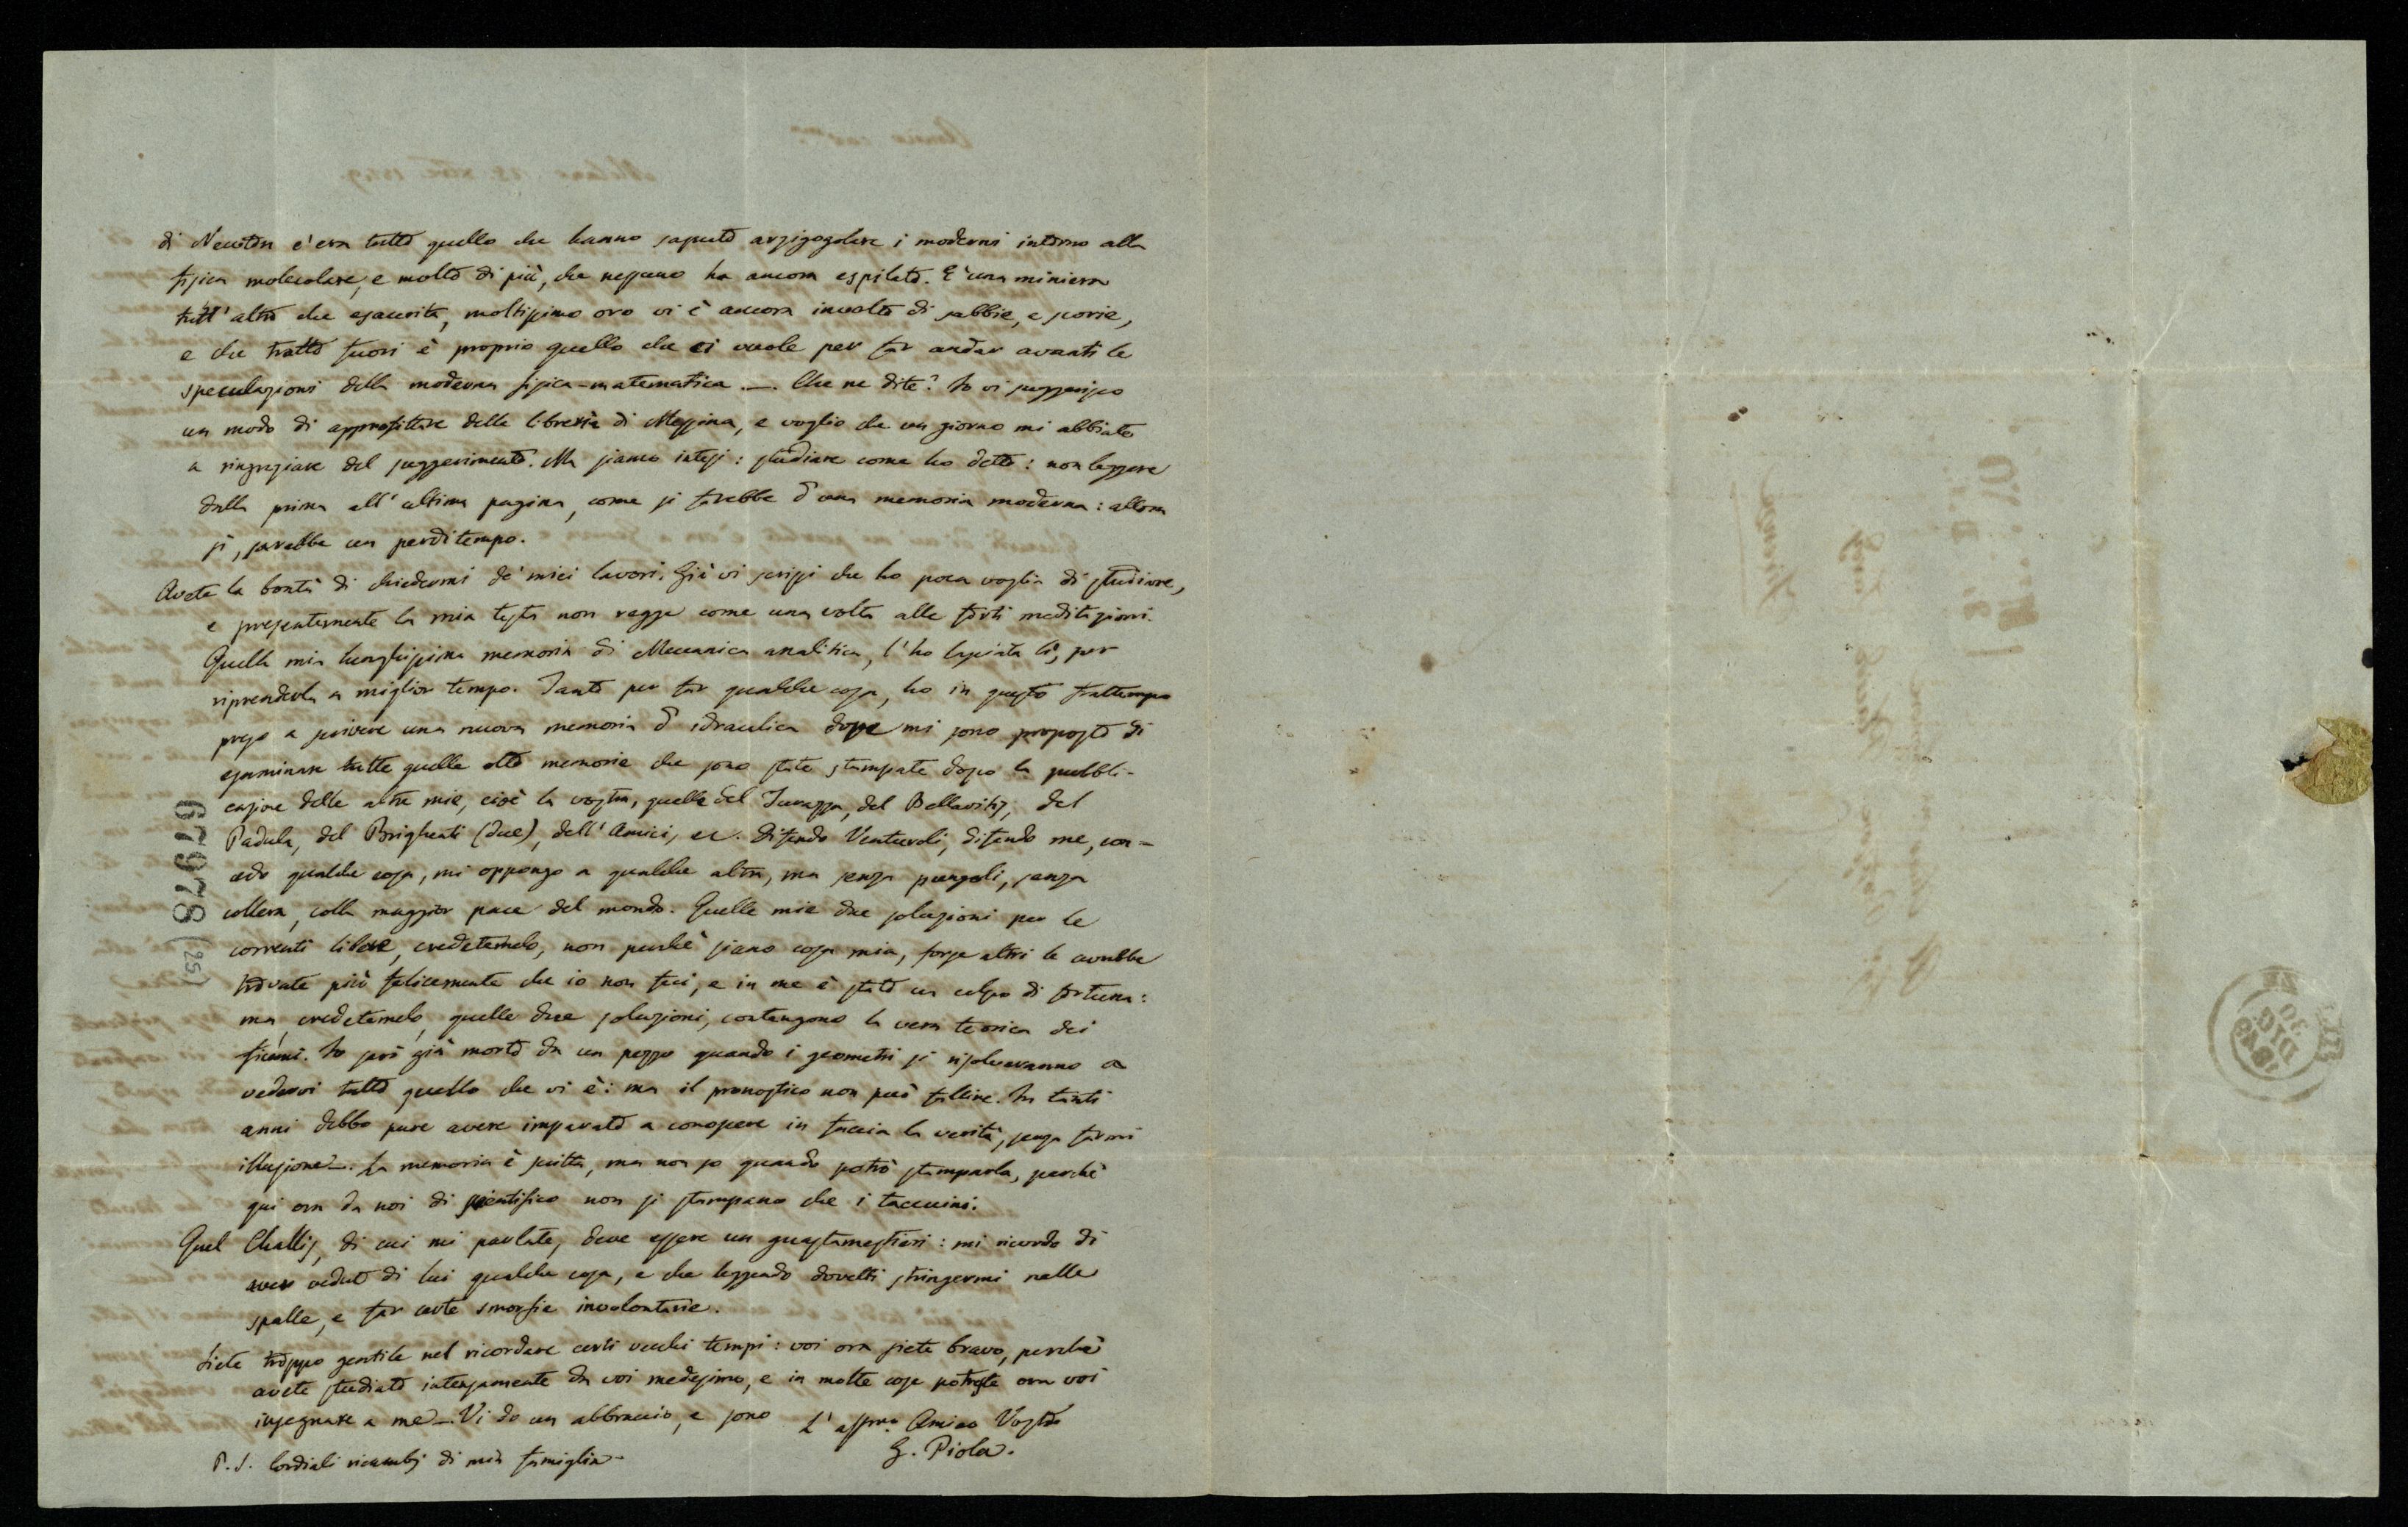 di Newton c'era tutto quello che hanno saputo arzigogolare i moderni intorno alla
fisica molecolare, e molto di più, che nessuno ha ancora espilato. È una miniera
tutt'altro che esaurita, moltissimo oro vi è ancora involto di sabbie, e scorie,
e che tratto fuori è proprio quello che ci vuole per far andar avanti le
speculazioni della moderna fisica-matematica. — Che ne dite? Io vi suggerisco
un modo di approfittare della libreria di Messina, e voglio che un giorno mi abbiate
a ringraziare del suggerimento. Ma siamo intesi: studiare come ho detto: non leggere
dalla prima all'ultima pagina, come si farebbe d'una memoria moderna: allora
sì, sarebbe un perditempo.
Avete la bontà di chiedermi de' miei lavori. Già vi scrissi che ho poca voglia di studiare,
e presentemente la mia testa non regge come una volta alle forti meditazioni.
Quella mia lunghissima memoria di Meccanica analitica, l'ho lasciata lì, per
riprenderla a miglior tempo. Tanto per far qualche cosa, ho in questo frattempo
preso a scrivere una nuova memoria d'idraulica dove mi sono proposto di
esaminare tutte quelle otto memorie che sono state stampate dopo la pubbli-
cazione delle altre mie, cioè la vostra, quelle del Turazza, del Bellavitis, del
Padula, del Brighenti (due), dell'Amici, ec. Difendo Venturoli, difendo me, con-
cedo qualche cosa, mi oppongo a qualche altra, ma senza pungoli, senza
collera, colla maggior pace del mondo. Quelle mie due soluzioni per le
correnti libere, credetemelo, non perchè siano cosa mia, forse altri le avrebbe
trovate più felicemente che io non feci, e in me è stato un colpo di fortuna:
ma, credetemelo, quelle due soluzioni, contengono la vera teorica dei
fiumi. Io sarò già morto da un pezzo quando i geometri si risolveranno a
vedervi tutto quello che vi è: ma il pronostico non può fallire. In tanti
anni debbo pure avere imparato a conoscere in faccia la verità, senza farmi
illusione. — La memoria è scritta, ma non so quando potrò stamparla, perchè
qui ora da noi di scientifico non si stampano che i taccuini.
Quel Challis, di cui mi parlate, deve essere un guastamestieri: mi ricordo di
aver veduto di lui qualche cosa, e che leggendo dovetti stringermi nelle
spalle, e far certe smorfie involontarie.
Siete troppo gentile nel ricordare certi vecchi tempi: voi ora siete bravo, perchè
avete studiato intensamente da voi medesimo, e in molte cose potreste ora voi
insegnare a me. — Vi do un abbraccio, e sono L'affmo. Amico Vostro
G. Piola.
P.S. Cordiali ricambj di mia famiglia.
87619
(25)
DIC
30